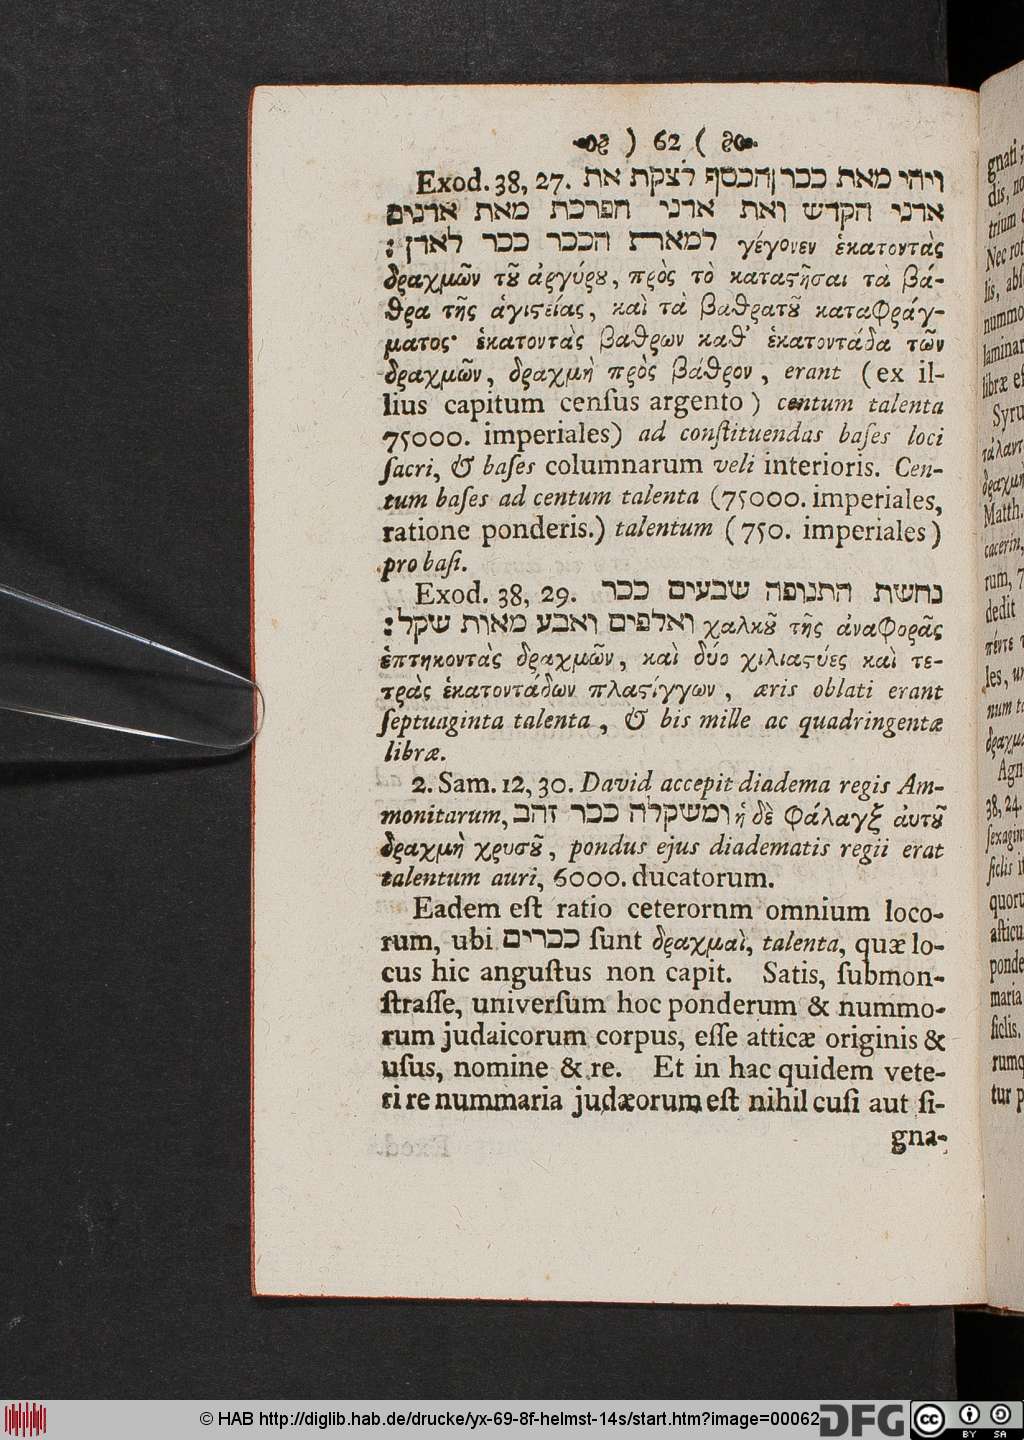 ) 62 (
Exod. 38, 27. ויהי מאת ככר הכסף לצקת את
אדני הקדש ואת אדני הפרכת מאת אדנים
למאת הככר ככר לאדן: γέγονεν ἑκατοντὰς
δραχμῶν τȣ͂ ἀργύρȣ, πρὸς τὸ καταϛῆσαι τὰ βά-
θρα τῆς ἁγιϛείας, καὶ τὰ βαθρατȣ͂ καταφράγ-
ματος· ἑκατοντὰς βαθρων καθ' ἑκατοντάδα τῶν
δραχμῶν, δραχμὴ πρὸς βάθρον, erant (ex il-
lius capitum cenſus argento) centum talenta
75000. imperiales) ad conſtituendas baſes loci
ſacri, & baſes columnarum veli interioris. Cen-
tum baſes ad centum talenta (75000. imperiales,
ratione ponderis.) talentum (750. imperiales)
pro baſi.
Exod. 38, 29. נחשת התנופה שבעים ככר
ואלפים וארבע מאות שקל: χαλκȣ͂ τῆς ἀναφορᾶς
ἑπτηκοντὰς δραχμῶν, καὶ δύο χιλιαϛύες καὶ τε-
τρὰς ἑκατοντάδων πλαϛίγγων, æris oblati erant
ſeptuaginta talenta, & bis mille ac quadringentæ
libræ.
2. Sam. 12, 30. David accepit diadema regis Am-
monitarum, ומשקלה ככר זהב ἡ δὲ φάλαγξ ἀυτȣ͂
δραχμὴ χρυσȣ͂, pondus ejus diadematis regii erat
talentum auri, 6000. ducatorum.
Eadem eſt ratio ceterornm omnium loco-
rum, ubi ככרים ſunt δραχμαὶ, talenta, quæ lo-
cus hic anguſtus non capit. Satis, ſubmon-
ſtraſſe, univerſum hoc ponderum & nummo-
rum judaicorum corpus, eſſe atticæ originis &
uſus, nomine & re. Et in hac quidem vete-
ri re nummaria judæorum eſt nihil cuſi aut ſi-
gna-
gnati
dis, no
trium
Nec rot
lis, abſ
nummo
laminar
libræ eſ
Syru
τάλαντ
δραχμὴ
Matth.
rum, 7
dedit
πέντε
les, un
num ta
δραχμα
Agn
38, 24.
ſexagin
ſiclis
quoru
aſticu
ponde
maria
ſiclis.
rumq
tur p
© HAB http://diglib.hab.de/drucke/yx-69-8f-helmst-14s/start.htm?image=00062
DFG
cc
BY SA